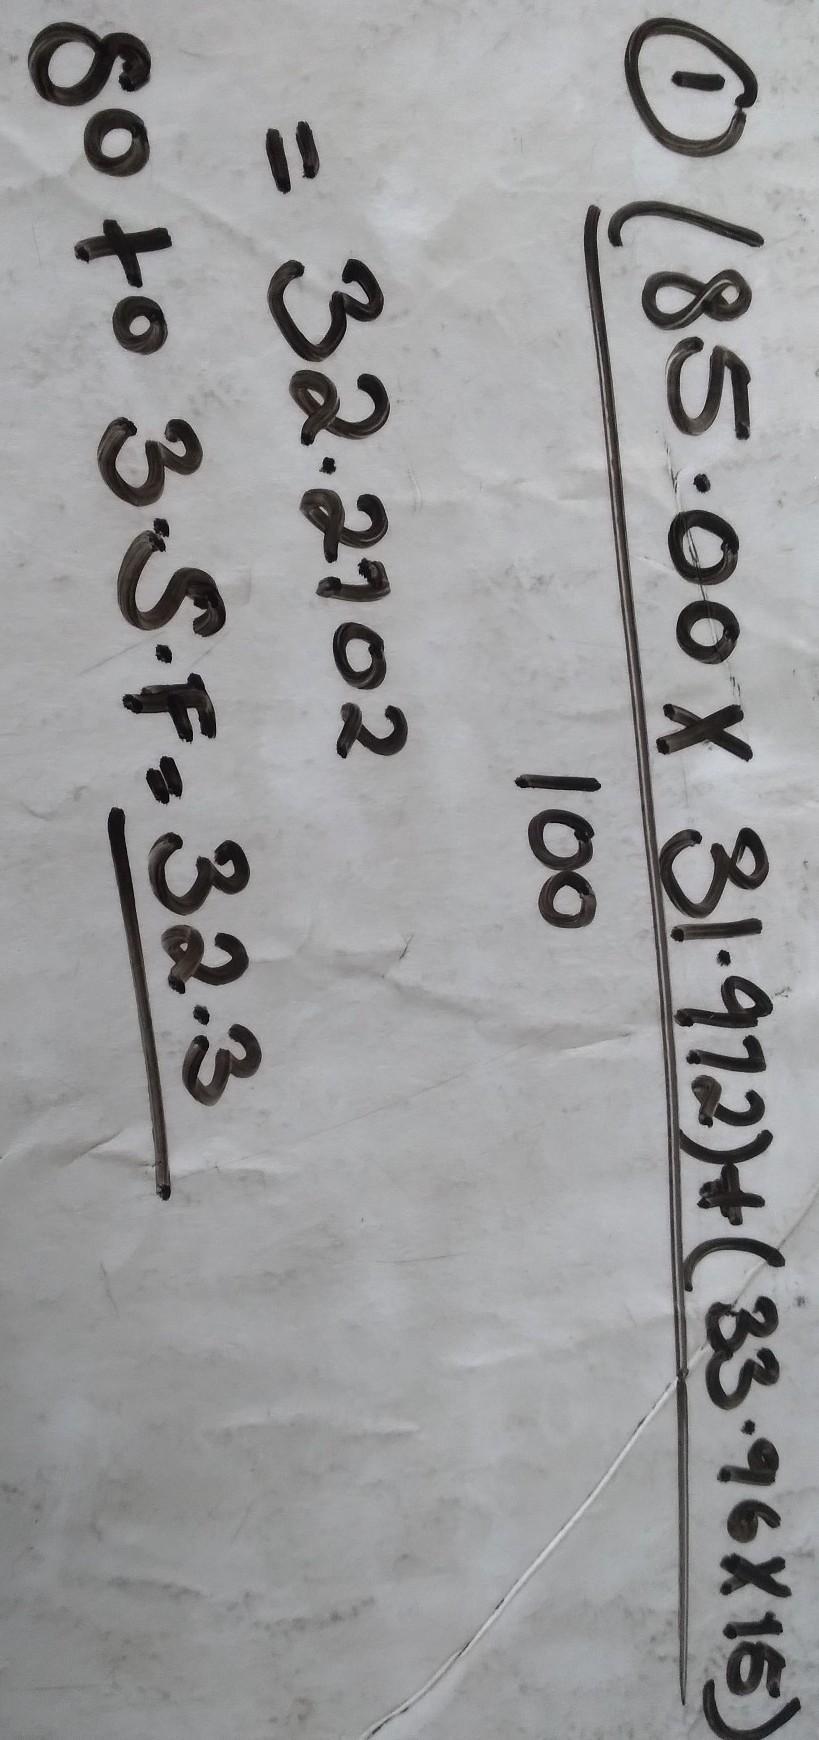 ① (85.00 X 31.972) + (33.96 X 15)
100
= 32.2702
So to 3.S.F = 32.3